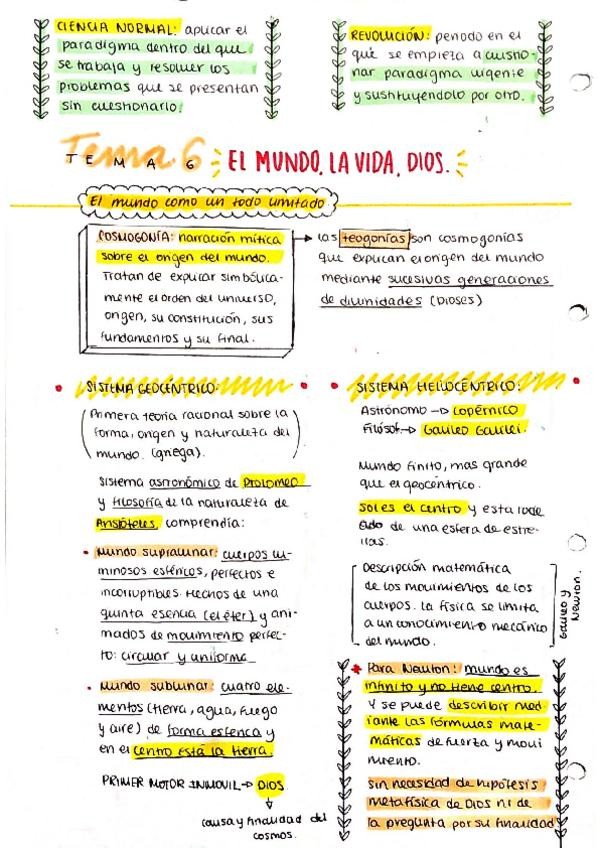 CIENCIA NORMAL: aplicar el
paradigma dentro del que
se trabaja y resolver los
problemas que se presentan
sin cuestionarlo.
REVOLUCIÓN: periodo en el
que se empieza a cuestio-
nar paradigma vigente
y sustituyéndolo por otro.
Tema 6
TEMA 6
EL MUNDO, LA VIDA, DIOS.
El mundo como un todo limitado
COSMOGONÍA: narración mítica
sobre el origen del mundo.
Tratan de explicar simbólica-
mente el orden del universo,
origen, su constitución, sus
fundamentos y su final.
las teogonías son cosmogonías
que explican el origen del mundo
mediante sucesivas generaciones
de divinidades (DIOSES)
SISTEMA GEOCÉNTRICO:
Primera teoría racional sobre la
forma, origen y naturaleza del
mundo. (griega).
Sistema astronómico de Ptolomeo
y filosofía de la naturaleza de
Aristóteles, comprendía:
• Mundo supralunar: cuerpos lu-
minosos esféricos, perfectos e
incorruptibles. Hechos de una
quinta esencia (el éter) y ani-
mados de movimiento perfec-
to: circular y uniforme
• Mundo sublunar: cuatro ele-
mentos (tierra, agua, fuego
y aire) de forma esférica y
en el centro está la tierra.
PRIMER MOTOR INMOVIL → DIOS
↓
causa y finalidad del
cosmos.
SISTEMA HELIOCÉNTRICO:
Astrónomo → Copérnico
Filósof. → Galileo Galilei.
Mundo finito, mas grande
que el geocéntrico.
Sol es el centro y esta rode
ado de una esfera de estre-
llas.
Descripción matemática
de los movimientos de los
cuerpos. la física se limita
a un conocimiento mecánico
del mundo.
Galileo y
Newton.
* Para Newton: mundo es
infinito y no tiene centro.
Y se puede describir med
iante las fórmulas mate-
máticas de fuerza y movi
miento.
Sin necesidad de hipótesis
metafísica de Dios ni de
la pregunta por su finalidad